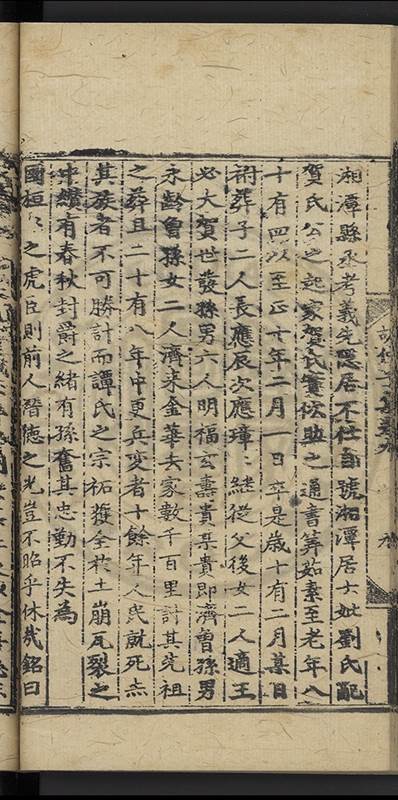 湘潭縣永考義先隱居不仕自號湘潭居士妣劉氏配
賀氏公之起家賀氏實攸助之通書筭茹素至老年八
十有四以至正十年二月一日卒是歲十有二月某日
祔葬子二人長應辰次應璋璋繼從父後女二人適王
必大賀世發孫男六人明福玄壽貴某貴即濟曾孫男
永齡曾孫女二人濟來金華去家數千百里討其先祖
之葬且二十有八年中更兵変者十餘年人民就死亦
其族者不可勝計而譚氏之宗祏獲全於土崩瓦裂之
中纘有春秋封爵之緒有孫奮其忠勤不失為
國桓〻之虎臣則前人潛德之光豈不昭乎休哉銘曰